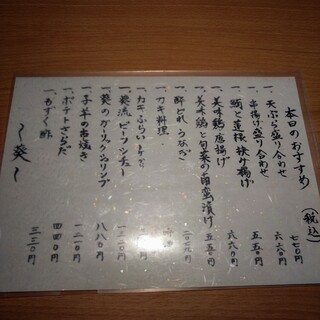 本日のおすすめ (税込)
一、天ぷら盛り合わせ 七七〇円
一、串揚げ盛り合わせ 六六〇円
一、鶏と蓮根挟み揚げ 五五〇円
一、美味鶏唐揚げ 六六〇円
一、美味鶏と旬菜の南蛮漬け 五五〇円
一、酢どれうなぎ
一、カキ料理
一、カキふらい
一、葵流ビーフシチュー
一、葵のガーリックシュリンプ 八八〇円
一、子羊の香焼き 一二一〇円
一、ポテトさらだ 四四〇円
一、もずく酢 三三〇円
〜葵〜